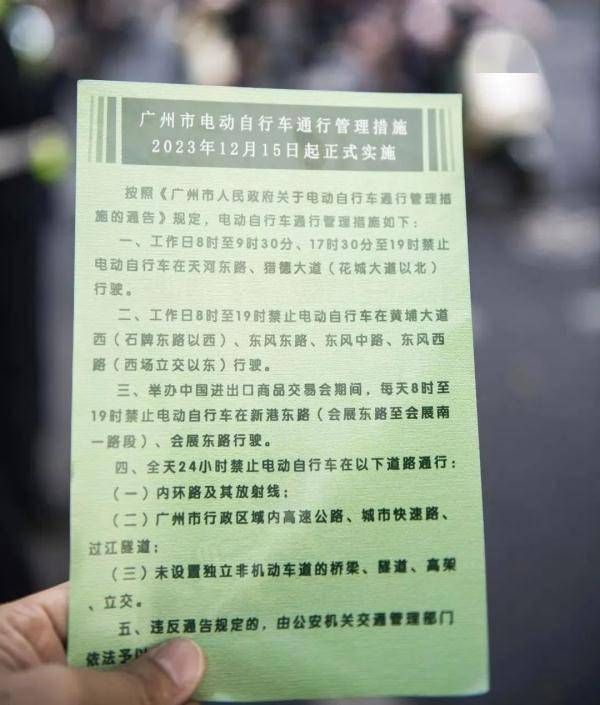 广州市电动自行车通行管理措施
2023年12月15日起正式实施
按照《广州市人民政府关于电动自行车通行管理措
施的通告》规定，电动自行车通行管理措施如下：
一、工作日8时至9时30分、17时30分至19时禁止
电动自行车在天河东路、猎德大道（花城大道以北）
行驶。
二、工作日8时至19时禁止电动自行车在黄埔大道
西（石牌东路以西）、东风东路、东风中路、东风西
路（西场立交以东）行驶。
三、举办中国进出口商品交易会期间，每天8时至
19时禁止电动自行车在新港东路（会展东路至会展南
一路段）、会展东路行驶。
四、全天24小时禁止电动自行车在以下道路通行：
（一）内环路及其放射线；
（二）广州市行政区域内高速公路、城市快速路、
过江隧道；
（三）未设置独立非机动车道的桥梁、隧道、高架
、立交。
五、违反通告规定的，由公安机关交通管理部门
依法予以